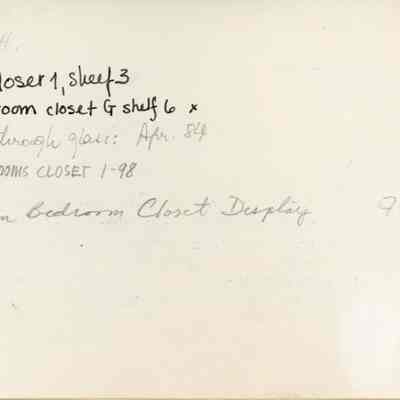 H.
loset 1, shelf 3
room closet G shelf 6 x
through glass: Apr. 84
OOMS CLOSET 1-98
n Bedroom Closet Display 9